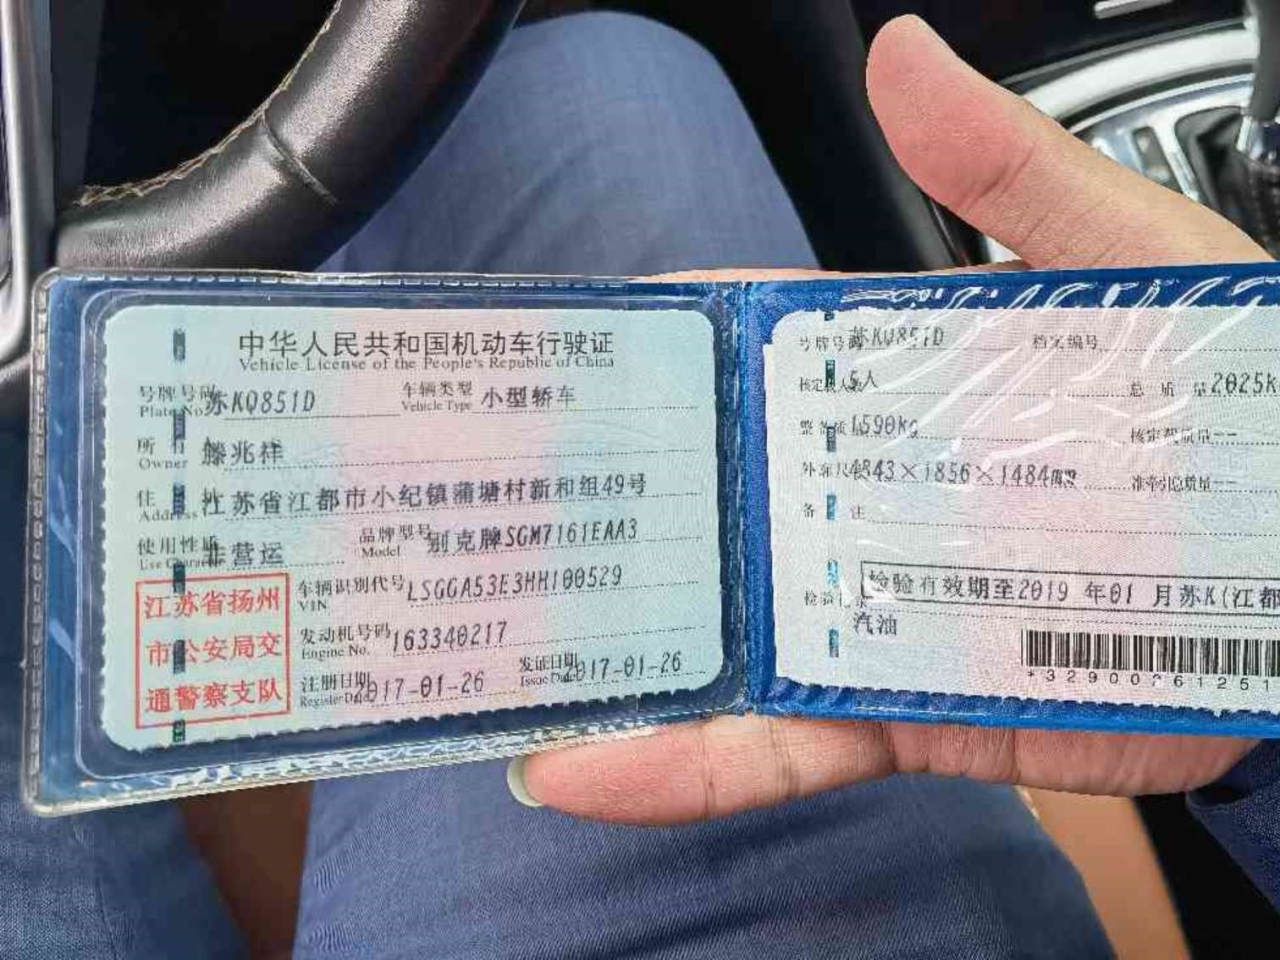 中华人民共和国机动车行驶证
Vehicle License of the People's Republic of China
号牌号码 苏KQ851D 车辆类型 小型轿车
Plate No. Vehicle Type
所有 滕兆祥
Owner
住 江苏省江都市小纪镇蒲塘村新和组49号
Address
使用性质 非营运 品牌型号 别克牌SGM7161EAA3
Use Character Model
车辆识别代号 LSGGA53E3HH100529
VIN
发动机号码 163340217
Engine No.
注册日期 2017-01-26 发证日期 2017-01-26
Register Date Issue Date
江苏省扬州
市公安局交
通警察支队
号牌号码 苏KQ851D 档案编号
核定载人数 5人 总质量 2025k
整备质量 1590kg 核定载质量 --
外廓尺寸 4843×1856×1484mm 准牵引总质量 --
备注
检验有效期至2019年01月苏K(江都
检验记录
汽油
*32900261251